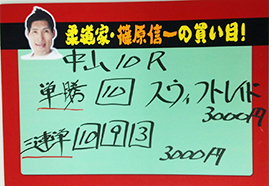 柔道家・篠原信一の買い目!
中山10R
単勝 10 スウィフトレイド
3000円
三連単 10 9 3
3000円